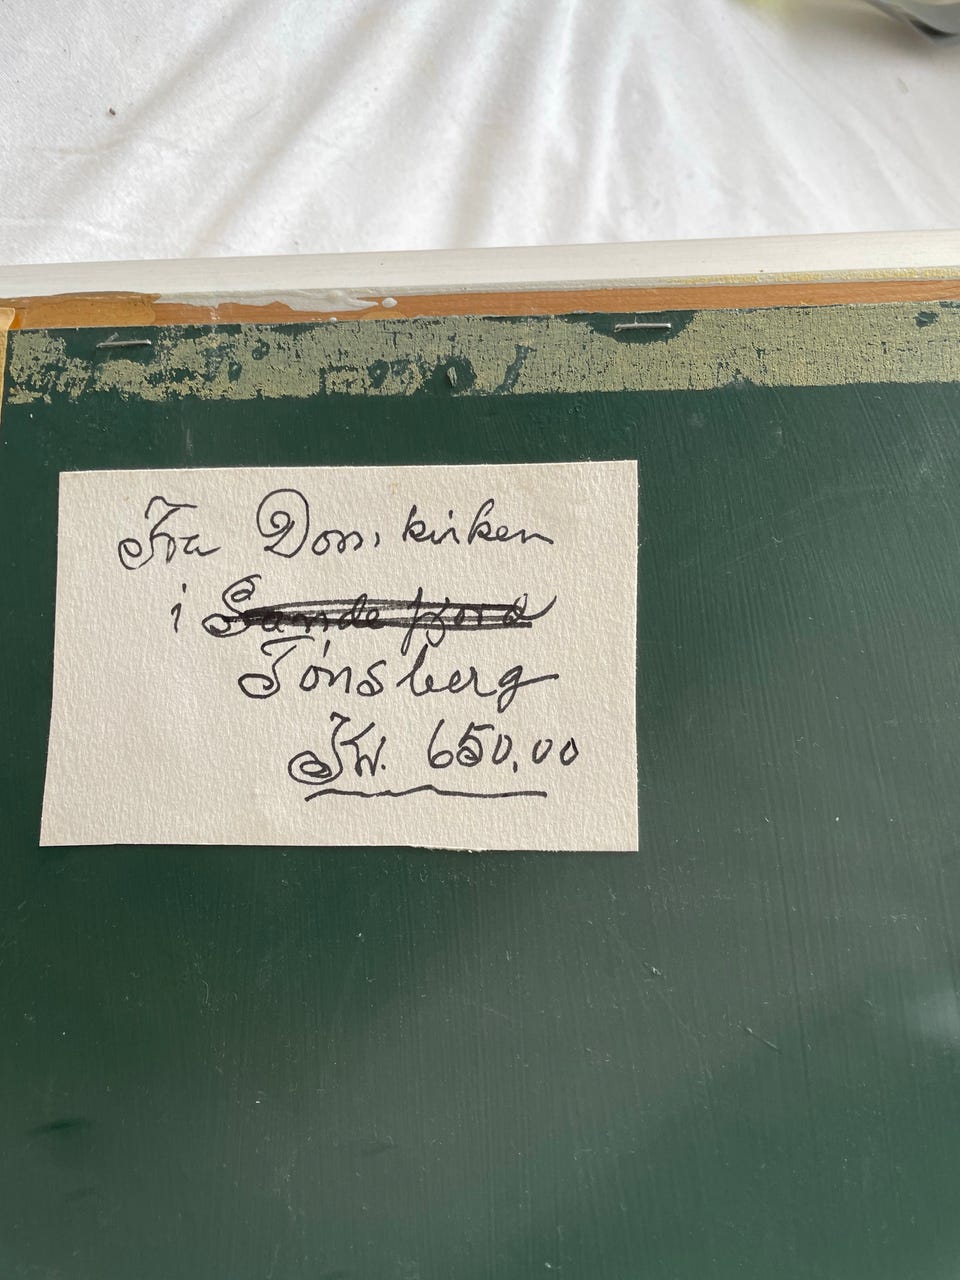 Fra Domkirken
i Sandefjord
Tønsberg
Kr. 650,00